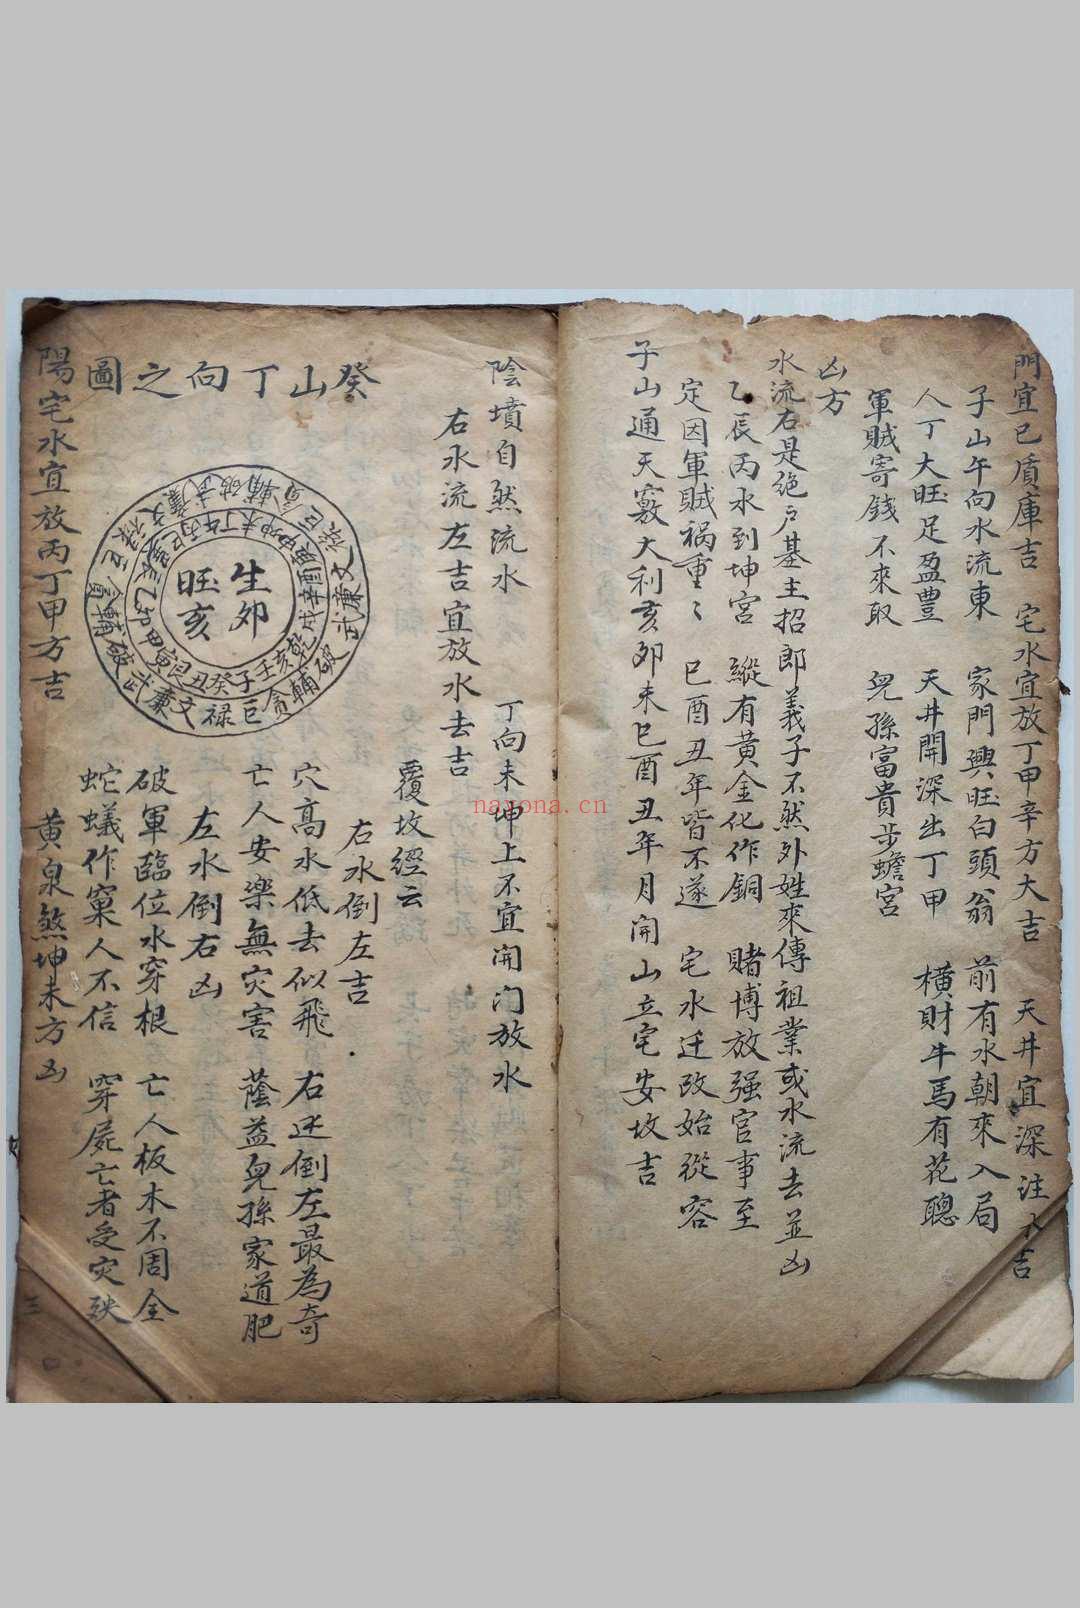 門宜巳盾庫吉 宅水宜放丁甲辛方大吉 天井宜深注水吉
子山午向水流東 家門興旺白頭翁 前有水朝來入局
人丁大旺足盈豊 天井開深出丁甲 橫財牛馬有花聰
軍賊寄錢不來取 兒孫富貴步蟾宮
凶方
水流右是絶户基主招郎義子不然外姓來傳祖業或水流去並凶
乙辰丙水到坤宮 縱有黃金化作銅 賭博放强官事至
定因軍賊禍重〻 巳酉丑年皆不遂 宅水迁改始從容
子山通天竅大利亥卯未巳酉丑年月開山立宅安坟吉
陰墳自然流水 丁向未坤上不宜開门放水
右水流左吉宜放水去吉
覆坟經云
右水倒左吉
穴高水低去似飛 右迋倒左最為奇
亡人安樂無灾害 蔭益兒孫家道肥
左水倒右凶
破軍臨位水穿根 亡人板木不周全
蛇蟻作窠人不信 穿屍亡者受灾殃
黄泉煞坤未方凶
癸山丁向之圖
生卯
旺亥
子癸丑艮寅甲卯乙辰巽巳丙午丁未坤申庚酉辛戌乾亥壬
祿文廉武破輔貪巨祿文廉武破輔貪巨祿文廉武破輔貪巨
陽宅水宜放丙丁甲方吉
nayona.cn